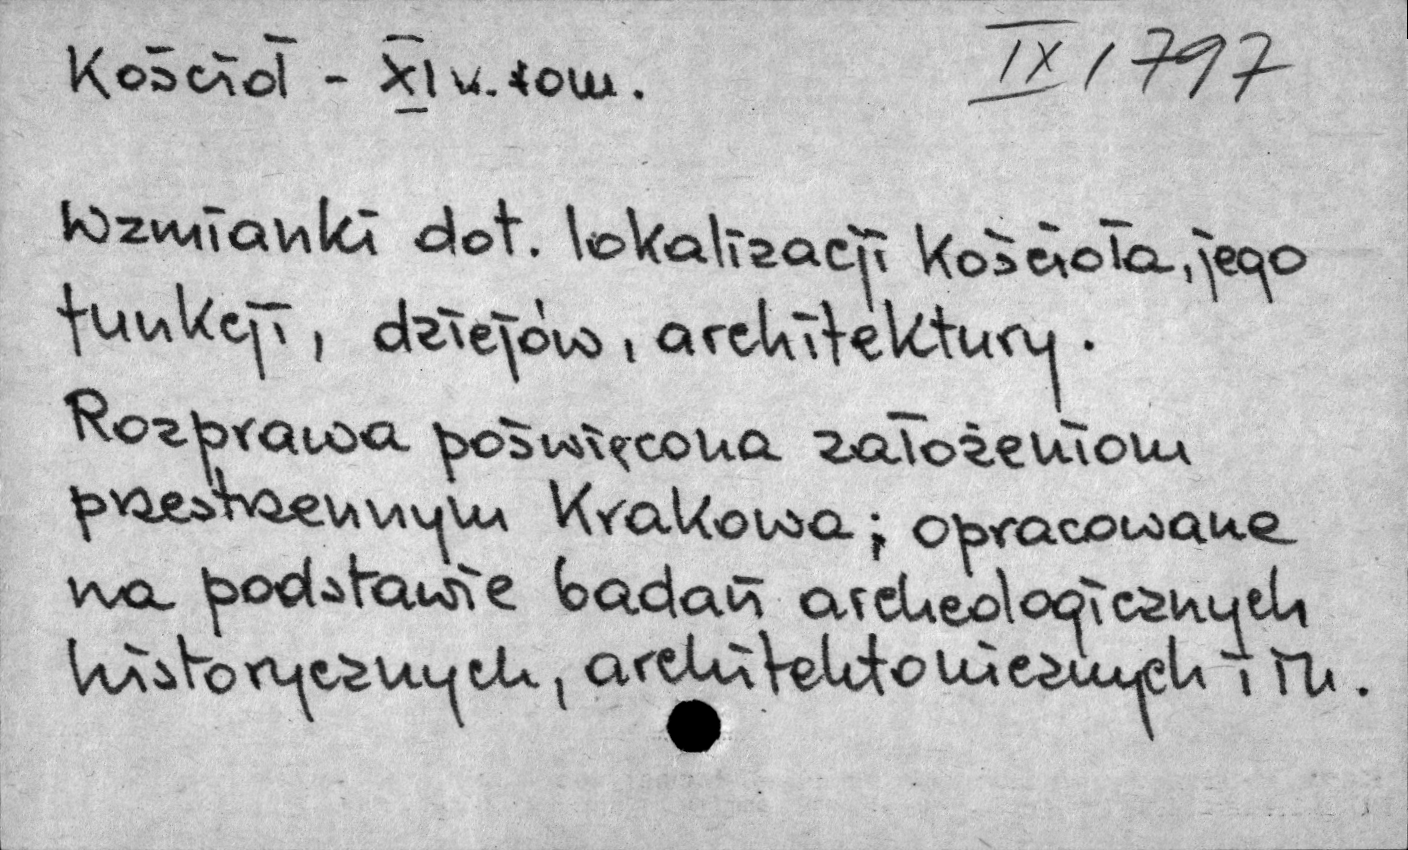 Kościół - XI w. rom.
IX/797
Wzmianki dot. lokalizacji kościoła, jego
funkcji, dziejów, architektury.
Rozprawa poświęcona założeniom
przestrzennym Krakowa; opracowane
na podstawie badań archeologicznych
historycznych, architektonicznych i in.